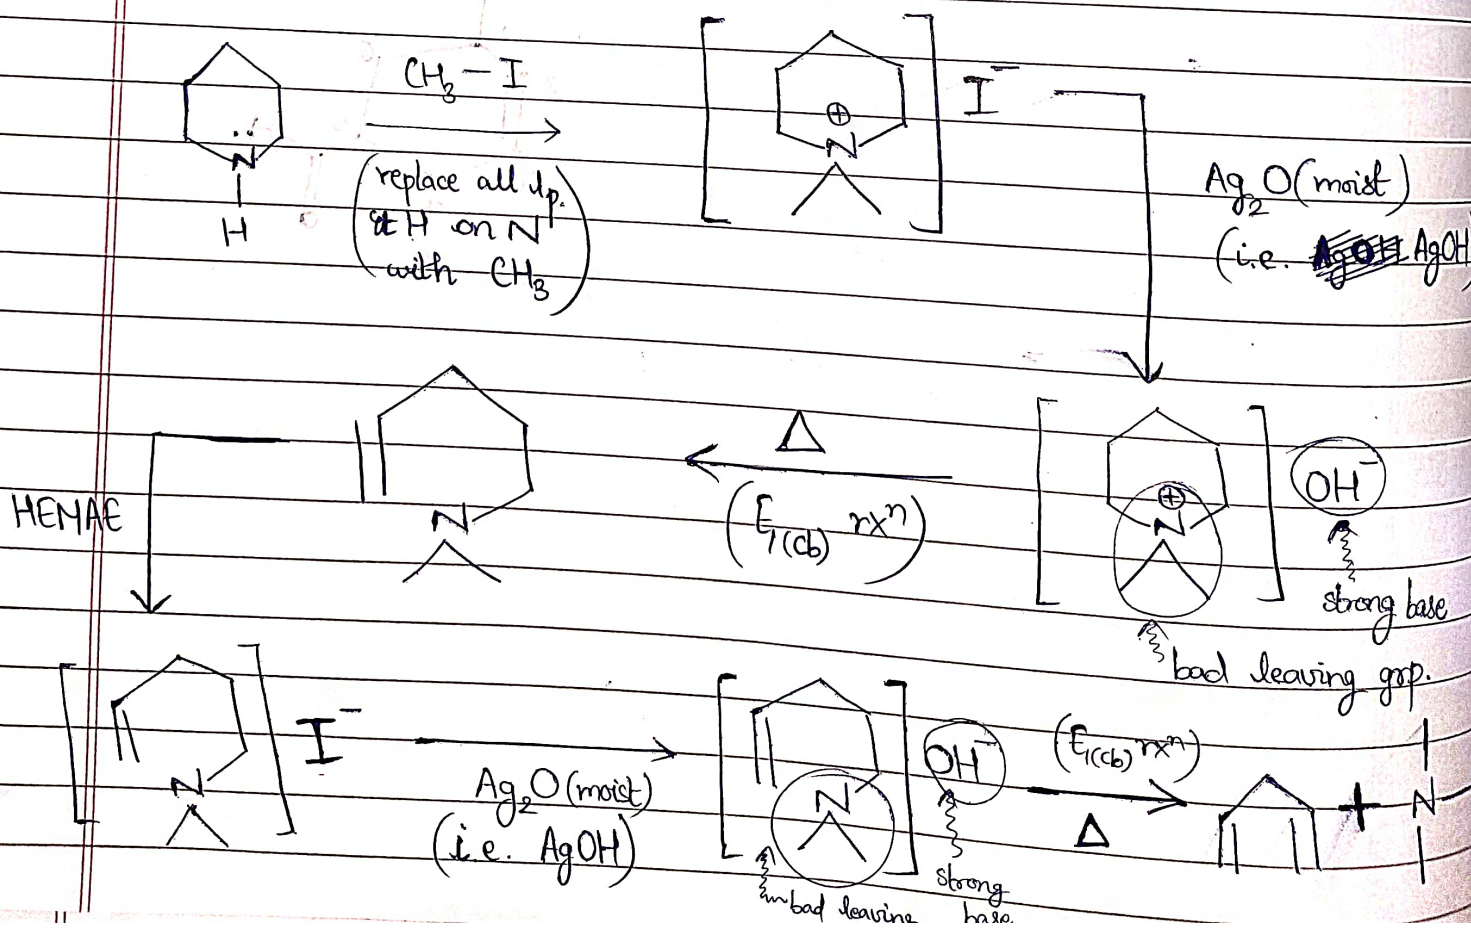 CH₃ – I
(replace all lp.
& H on N
with CH₃)
N
H
⊕
N
I⁻
Ag₂O (moist)
(i.e. AgOH
Δ
(E₁(cb) rxⁿ)
N
⊕
N
OH⁻
strong base
bad leaving grp.
HEMAE
N
I⁻
Ag₂O (moist)
(i.e. AgOH)
N
OH⁻
bad leaving
strong
base
(E₁(cb) rxⁿ)
Δ
+
N